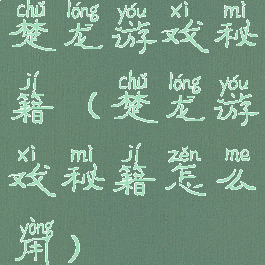 chǔ lóng yóu xì mì
楚龙游戏秘
jí chǔ lóng yóu
籍(楚龙游
xì mì jí zěn me
戏秘籍怎么
yòng
用)